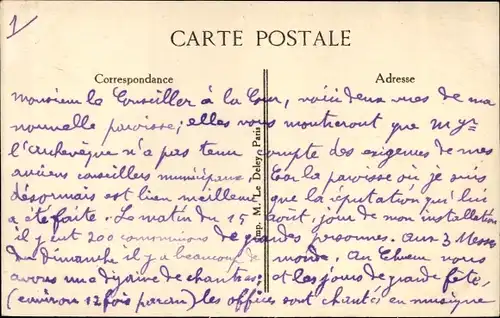 1
CARTE POSTALE
Correspondance
Adresse
Monsieur le Conseiller à la Cour, voici deux vues de ma
nouvelle paroisse; elles vous montreront que Mgr
l'archevêque n'a pas tenu compte des exigences de mes
anciens conseillers municipaux. Car la paroisse où je suis
désormais est bien meilleure que la réputation qu'on lui
a été faite. Le matin du 15 août, jour de mon installation
il y eut 200 communions de grandes personnes. Aux 3 Messes
du dimanche il y a beaucoup de monde. Au Chœur nous
avons une dizaine de chantres; et les jours de grande fête,
(environ 12 fois par an) les offices sont chantés en musique
Imp. M. Le Deley, Paris